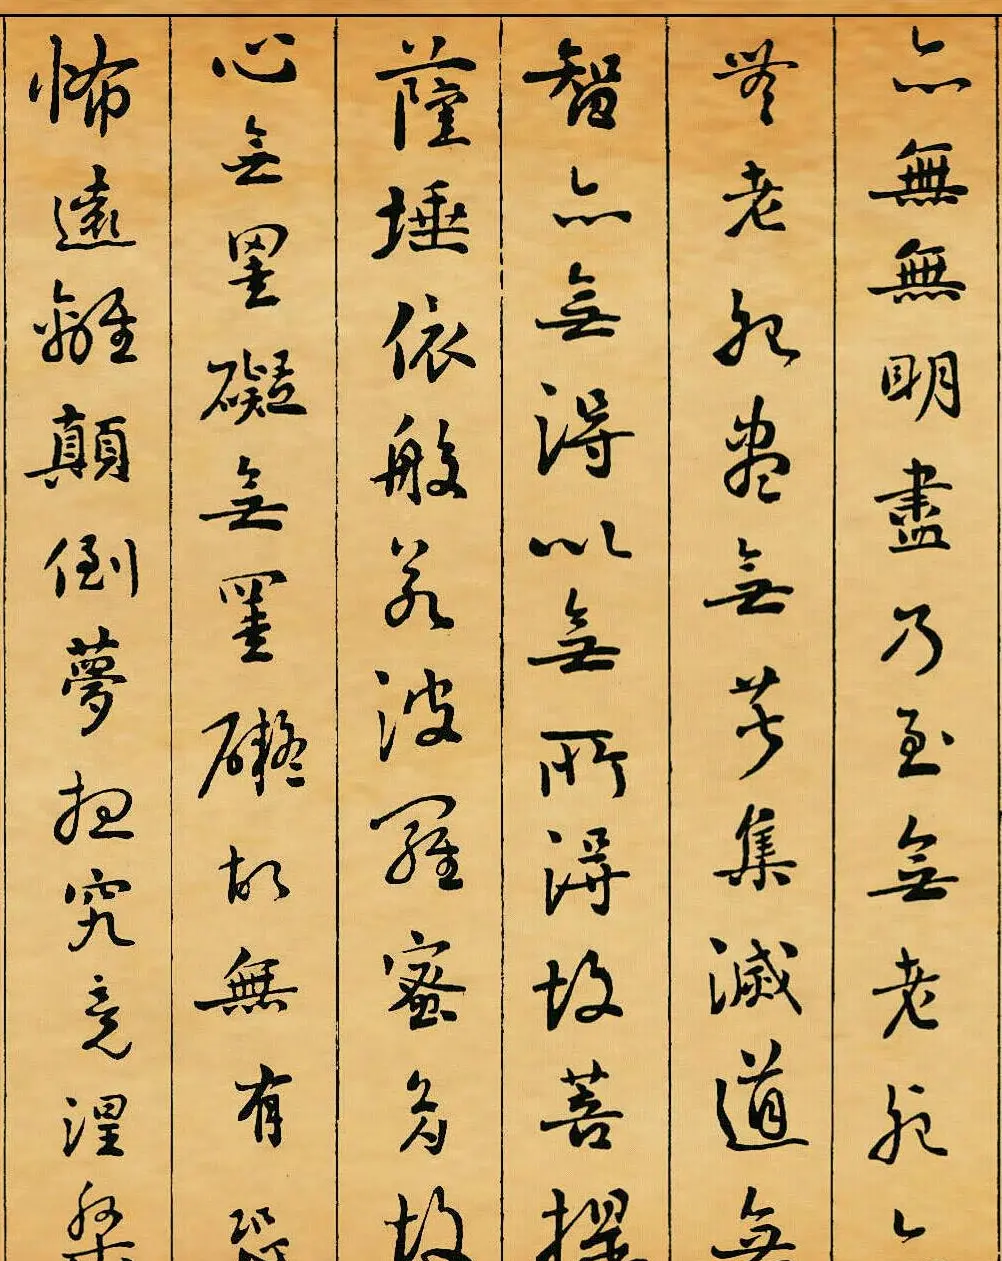 亦無無明盡乃至無老死
無老死盡無苦集滅道無
智亦無得以無所得故菩提
薩埵依般若波羅蜜多故
心無罣礙無罣礙故無有恐
怖遠離顛倒夢想究竟涅槃